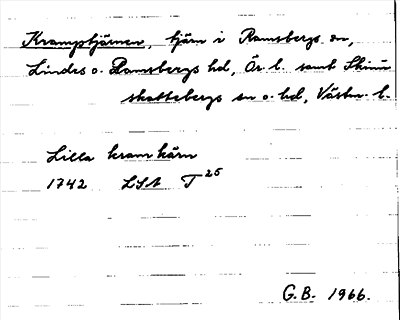 Kramptjärnen, tjärn i Ramsbergs sn,
Lindes o. Ramsbergs hd, Ör. l. samt Skinn-
skattebergs sn o. hd, Västm. l.
Lilla kram kärn
1742 LSA T 25
G.B. 1966.